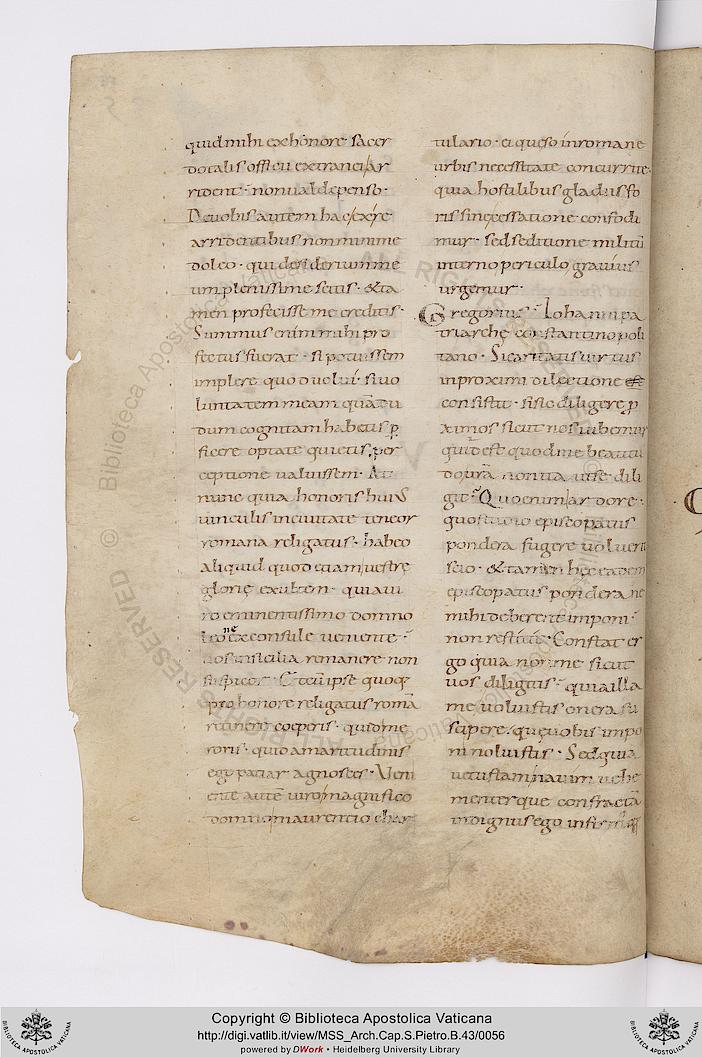 quid mihi ex honore sacer
dotalis officii extranei ar
rident · non valde penso ·
De vobis autem hac ex re
arridentibus non minime
doleo · qui desiderium me
um plenissime scitis · & ta
men profecisse me creditis ·
Summus enim mihi pro
fectus fuerat · si potuissem
implere quod volui · si vo
luntatem meam quā diu
dum cognitam habetis p̱
ficere optate quietis per
ceptione valuissem · At
nunc quia honoris huius
vinculis in civitate teneor
romana religatus · habeo
aliquid quod etiam vestrę
glorię exultem · quia vi
ro eminentissimo domno
ne
ex consule veniente ·
vos in sicilia remanere non
suspicor · & tu ipse quoq;
pro honore religatus romā
retinere coeperis · quid me
roris · quid amaritudinis
ego patiar agnosces · Veni
ente autē viro magnifico
domno maurentio char
tulario · ei queso in romane
urbis necessitate concurrite ·
quia hostilibus gladiis fo
ris sine cessatione confodi
mur · sed seditione militū
interno periculo gravius
urgemur ·
Gregorius · Iohanni pa
triarchę constantinopoli
tano · Si caritatis virtus
in proximi dilectione
consistit · si sic diligere p̱
ximos sicut nos iubemur
quid est quod me beatitu
do vr̄a non ita ut se dili
git · Quo enim ardore ·
quo studio episcopatus
pondera fugere volueritis
scio · & tamen hęc eadem
episcopatus pondera ne
mihi deberent imponi ·
non restitistis · Constat er
go quia non me sicut
vos diligitis · quia illa
me voluistis onera su
scipere · quę vobis impo
ni noluistis · Sed quia
vetustam navim vehe
menterque confractā
indignus ego infirmusq;
Copyright © Biblioteca Apostolica Vaticana
http://digi.vatlib.it/view/MSS_Arch.Cap.S.Pietro.B.43/0056
powered by DWork • Heidelberg University Library